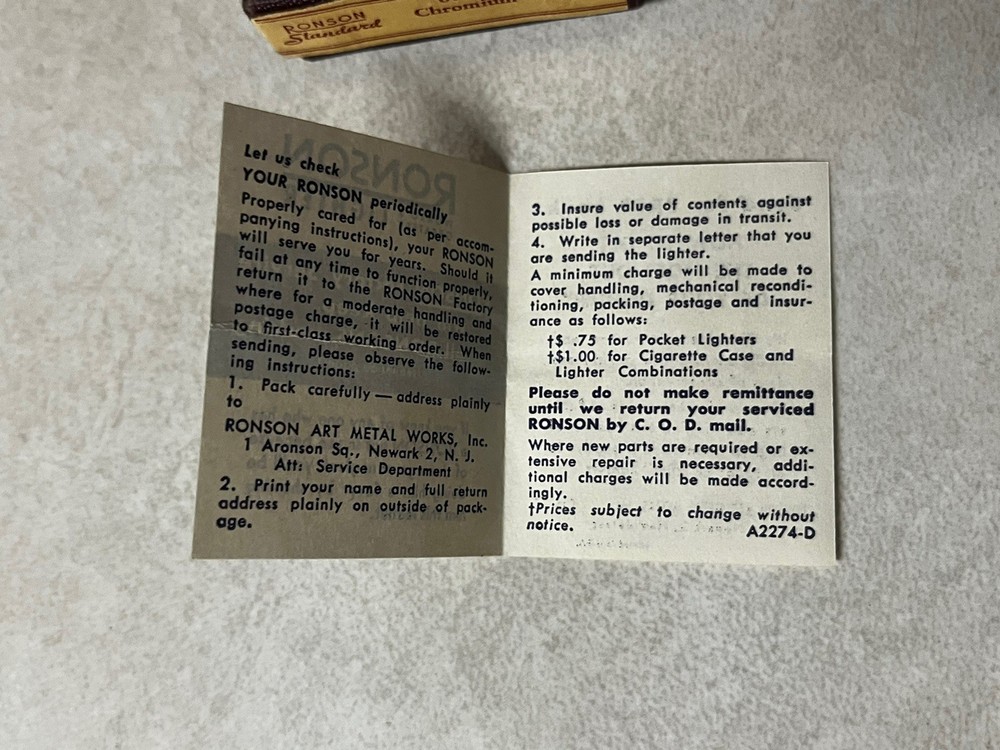 RONSON
Standard
Chromium
Let us check
YOUR RONSON periodically
Properly cared for (as per accom-
panying instructions), your RONSON
will serve you for years. Should it
fail at any time to function properly,
return it to the RONSON Factory
where for a moderate handling and
postage charge, it will be restored
to first-class working order. When
sending, please observe the follow-
ing instructions:
1. Pack carefully — address plainly
to
RONSON ART METAL WORKS, Inc.
1 Aronson Sq., Newark 2, N. J.
Att: Service Department
2. Print your name and full return
address plainly on outside of pack-
age.
3. Insure value of contents against
possible loss or damage in transit.
4. Write in separate letter that you
are sending the lighter.
A minimum charge will be made to
cover handling, mechanical recondi-
tioning, packing, postage and insur-
ance as follows:
†$ .75 for Pocket Lighters
†$1.00 for Cigarette Case and
Lighter Combinations
Please do not make remittance
until we return your serviced
RONSON by C. O. D. mail.
Where new parts are required or ex-
tensive repair is necessary, addi-
tional charges will be made accord-
ingly.
†Prices subject to change without
notice. A2274-D